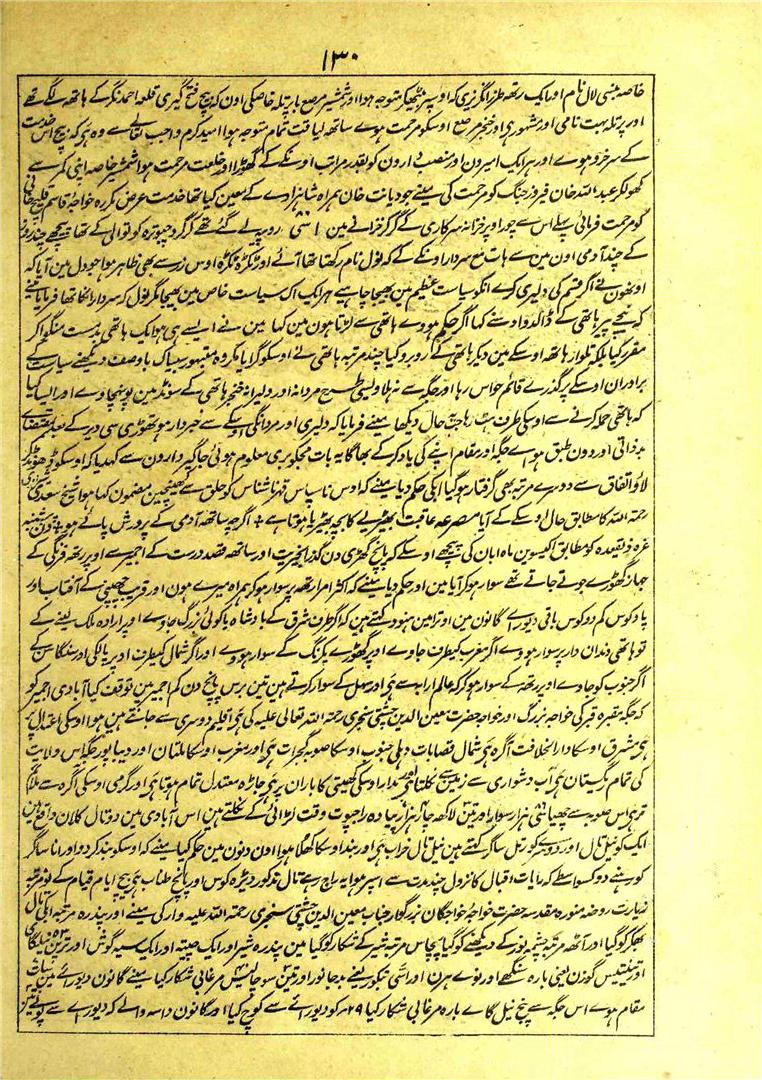 ۱۳۰
خاصہ بنسی لال نام اور ایک رتھ طرز انگریزی کہ اوسپر بیٹھکر متوجہ ہوا اور شمشیر مرصع با پرتلہ خاصکی اون کہ بیچ فتح گیری قلعہ احمد نگر کے ہاتھ لگے تھے
اور پرتلہ بہت نامی اور مشہور ہی اور خنجر مرصع اوسکو مرحمت ہوے ساتھ لیاقت تمام متوجہ ہوا امید کرم واجب تعالے سے وہ ہی کہ بیچ اس خدمت
کے سرخرو ہووے اور ہر ایک امیرون اور منصبدارون کو بقدر مراتب اونکے کے گھوڑا اور خلعت مرحمت ہوا شمشیر خاصہ اپنی کمر سے
کھولکر عبد اللہ خان فیروز جنگ کو مرحمت کی مینے جو دیانت خان ہمراہ شاہزادے کے معین کیا تھا خدمت عرض مکرر خواجہ قاسم قلیچ خانی
کو مرحمت فرمائی پہلے اس سے چور اوپر خزانہ سرکاری کے گر کر خزانے مین روپیہ لے گئے تھے گرد چبوترہ کوتوالی کے تھا پیچھے چند روز
کے چند آدمی اون مین سے ہاتھ مع سردار اونکے کے کہ نول نام رکھتا تھا آئے اور ٹکڑہ ٹکڑہ اوس زر سے بھی ظاہر ہوا جو دل مین آیا کہ
اونھون نے اگر قسم کی دلیری کرے انکو سیاست عظیم مین بھیجا چاہیے ہر ایک اک سیاست خاص مین بھیجا مگر نول کہ سردار انکا تھا فرمایا مینے
کہ نیچے پیر ہاتھی کے ڈالدو اوسنے کہا اگر حکم ہووے ہاتھی سے لڑتا ہون مین کہا مین نے ایسے ہی ہو ایک ہاتھی بدمست منگواکر
مقرر کیا بلکہ تلوار ہاتھ اوسکے مین دیکر ہاتھی کے روبرو کیا چند مرتبہ ہاتھی نے اوسکو گرایا مگر وہ متہور بیباک باوصف دیکھنے سیاست کے
برادران اوسکے پر گذرے قائم حواس رہا اور جگہ سے نہ ہلا ویسی طرح مردانہ اور دلیرانہ خنجر ہاتھی کے سونڈ مین پونہچا وے اور ایسا کیا
کہ ہاتھی حملہ کرنے سے اوسکی طرف سے رہا جب حال دیکھا مینے فرمایا کہ دلیری اور مردانگی اوسکے سے خبردار ہو تھوڑی سی دیر کے بعد مقتضاے
بدذاتی اور دون طبق ہوے جگہ اور مقام اپنے کی یاد کر کے بھاگا یہ بات مجکو بری معلوم ہوئی جاگیردارون سے کہدیا کہ اوسکو ڈھونڈکر
لاؤ اتفاق سے دوسرے مرتبہ بھی گرفتار ہوگیا ابکی حکم دیا مینے کہ اوس ناسپاس قہرناشناس کو حلق سے کھینچین مضمون کہا ہوا شیخ سعدی شیرازی
رحمۃ اللہ کا مطابق حال اوسکے کے آیا مصرعہ عاقبت بھیڑیے کا بچہ بھیڑیا ہوتا ہے ؛ اگرچہ ساتھ آدمی کے پرورش پائے ہو ؛ دن سہ شنبہ
غرہ ذیقعدہ کو مطابق اکیسوین ماہ ابان کی پیچھے اوسکے کہ پانچ گھڑی دن گذرا بخیریت اور ساتھ قصد درست کے اجمیر سے اوپر رتھ فرنگی کے
جہار گھوڑے جوتے جاتے تھے سوار ہوکر آیا مین اور حکم دیا مینے کہ اکثر امرا رتھ پر سوار ہوکر ہمراہ میرے ہون اور قریب چھپنے کے آفتاب اور
پاو کوس کم دو کوس باقی دیورے گانون مین اوترا مین ہنود کہتے ہین کہ اگر طرف شرق کے بادشاہ یا کوئی بزرگ جاوے اور ارادہ ملک لینے کے
تو ہاتھی دندان دار پر سوار ہووے اگر مغرب کیطرف جاوے اوپر گھوڑے یکرنگ کے سوار ہووے اور اگر شمال کیطرف اوپر پالکی اور سنگھاسن کے
اگر جنوب کو جاوے اوپر رتھ کے سوار ہوکر کہ عالم ارابہ سے ہی اور بہل کے سوار کرتے ہین تین برس پانچ دن کم اجمیر مین توقف کیا آبادی اجمیر کو
کہ جگہ مقبرہ قبر کی خواجہ بزرگ اور خواجہ حضرت معین الدین چشتی سنجری رحمۃ اللہ تعالی علیہ کی ہی اقلیم دوسری سے جانتے ہین ہوا اوسکی اعتدال پر
ہی مشرق اوسکا دارالخلافت آگرہ ہی شمال قصبات دہلی جنوب اوسکا صوبہ گجرات ہی اور مغرب اوسکا ملتان اور دیبا پور جگہ اس ولایت
کی تمام ریگستان ہی آب دشواری سے زمین سے نکلتا ہی اور مدار اوسکی کھیتی کا باران پر ہی جاڑہ معتدل تمام ہوتا ہی اور گرمی اوسکی آگرہ سے ملائم
تر ہی اس صوبہ سے چھیاسی ہزار سوار اور تین لاکھ چار ہزار پیادہ راجپوت وقت لڑائی کے نکلتے ہین اس آبادی مین دو تال کلان واقع ہین
ایک کو بیل تال اور دوسرے کو رتل ساگر کہتے ہین بیل تال خراب ہی اور بند اوسکا کھلا ہوا اون دنون مین حکم کیا مینے کہ اوسکو بند کردو اور انا ساگر
کو سنے دو کسواسطے کہ رایات اقبال کا نزول چند مدت سے اسپر ہوا یہ راج رہے تال مذکور ڈیڑہ کوس اور پانچ طناب ہی بیچ ایام قیام کے نو مرتبہ
زیارت روضہ منورہ مقدسہ حضرت خواجہ خواجگان بزرگوار جناب معین الدین چشتی سنجری رحمۃ اللہ علیہ وار کی مینے اور پندرہ مرتبہ ابکی تال
بھکر کو گیا اور آٹھ مرتبہ چشمہ پور کے دیکھنے کو گیا پچاس مرتبہ شیر کے شکار کو گیا مین پندرہ شیر اور ایک چیتہ اور ایک سیہ گوش اور ترپن نیلگاے
اور تینتیس گوزن یعنی بارہ سنگھے اور نوے ہرن اور اسّی خوک یعنے بدجانور اور تین سو چالیس مرغابی شکار کیا مینے گانون دیورانے مین سات
مقام ہوے اس جگہ سے پنج نیل گاے بارہ مرغابی شکار کیا ۲۹ کو دیورانے سے کوچ کیا اور گانون داسہ والے کہ دیورانے سے پونے تین